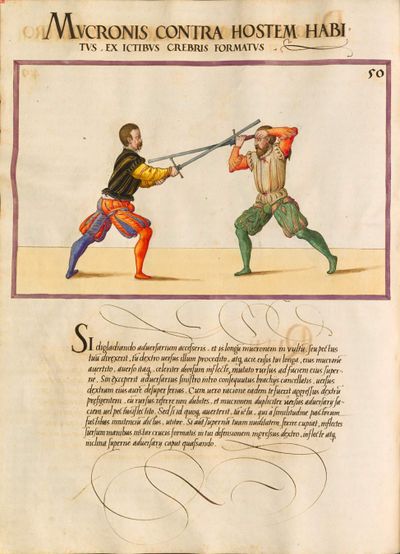 MVCRONIS CONTRA HOSTEM HABI
TVS . EX ICTIBVS CREBRIS FORMATVS .
50
SI digladiando adversarium accesseris, et is longū mucronem in vultū, seu pectus
tuū direxerit, tu dextro versus illum procedito, atq acie ensis tui longa, eius mucronē
avertito, averso itaq, celeriter deorsum inflecte, mutato rursus ad faciem eius super
ne. Sin exceperit adversarius sinistro intro consequatus brachijs cancellatis, versus
dextram eius aure desuper ferias. Cum vero ratione eadem te fuerit aggressus dextrū
praefigentem, tu rursus referre non dubites, et mucronem dupliciter versus adversarij fa
ciem vel pectus inflectito. Sed si id quoq averterit, tu ictu, qui a similitudine pastorum
fustibus innitenciū dictus, utitor. Si aut superna tuam nuditatem ferire cupiat, inflectes
sursum manibus instar crucis formatis in tui defensionem ingressus dextro, inflecte atq
inclina supernè adversarij caput quassando.